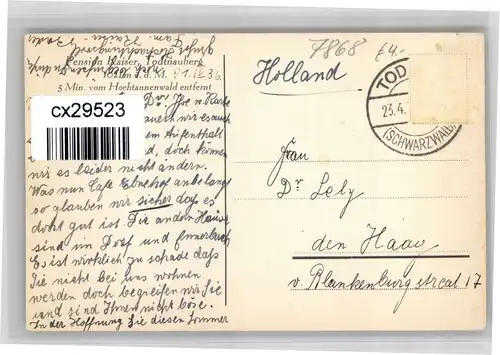 Pension Kaiser, Todtnauberg
1021m ü. d. M.
5 Min. vom Hochtannenwald entfernt
21.IV.36.
7868
£4-
Holland
TOD
23.4.
(SCHWARZWALD)
cx29523
Aufenthalt
doch können
wir es leider nicht ändern.
Was nun Cafe Ebnehof anbelangt
so glauben wir sicher dass es
dort gut ist. Die andern Häuser
sind im Dorf und Ennerbach
Es ist wirklich zu schade dass
Sie nicht bei uns wohnen
werden doch begreifen wir Sie
und sind Ihnen nicht böse.
In der Hoffnung Sie diesen Sommer
Frau
Dr Lely
den Haag
v. Blankenburgstraat 17